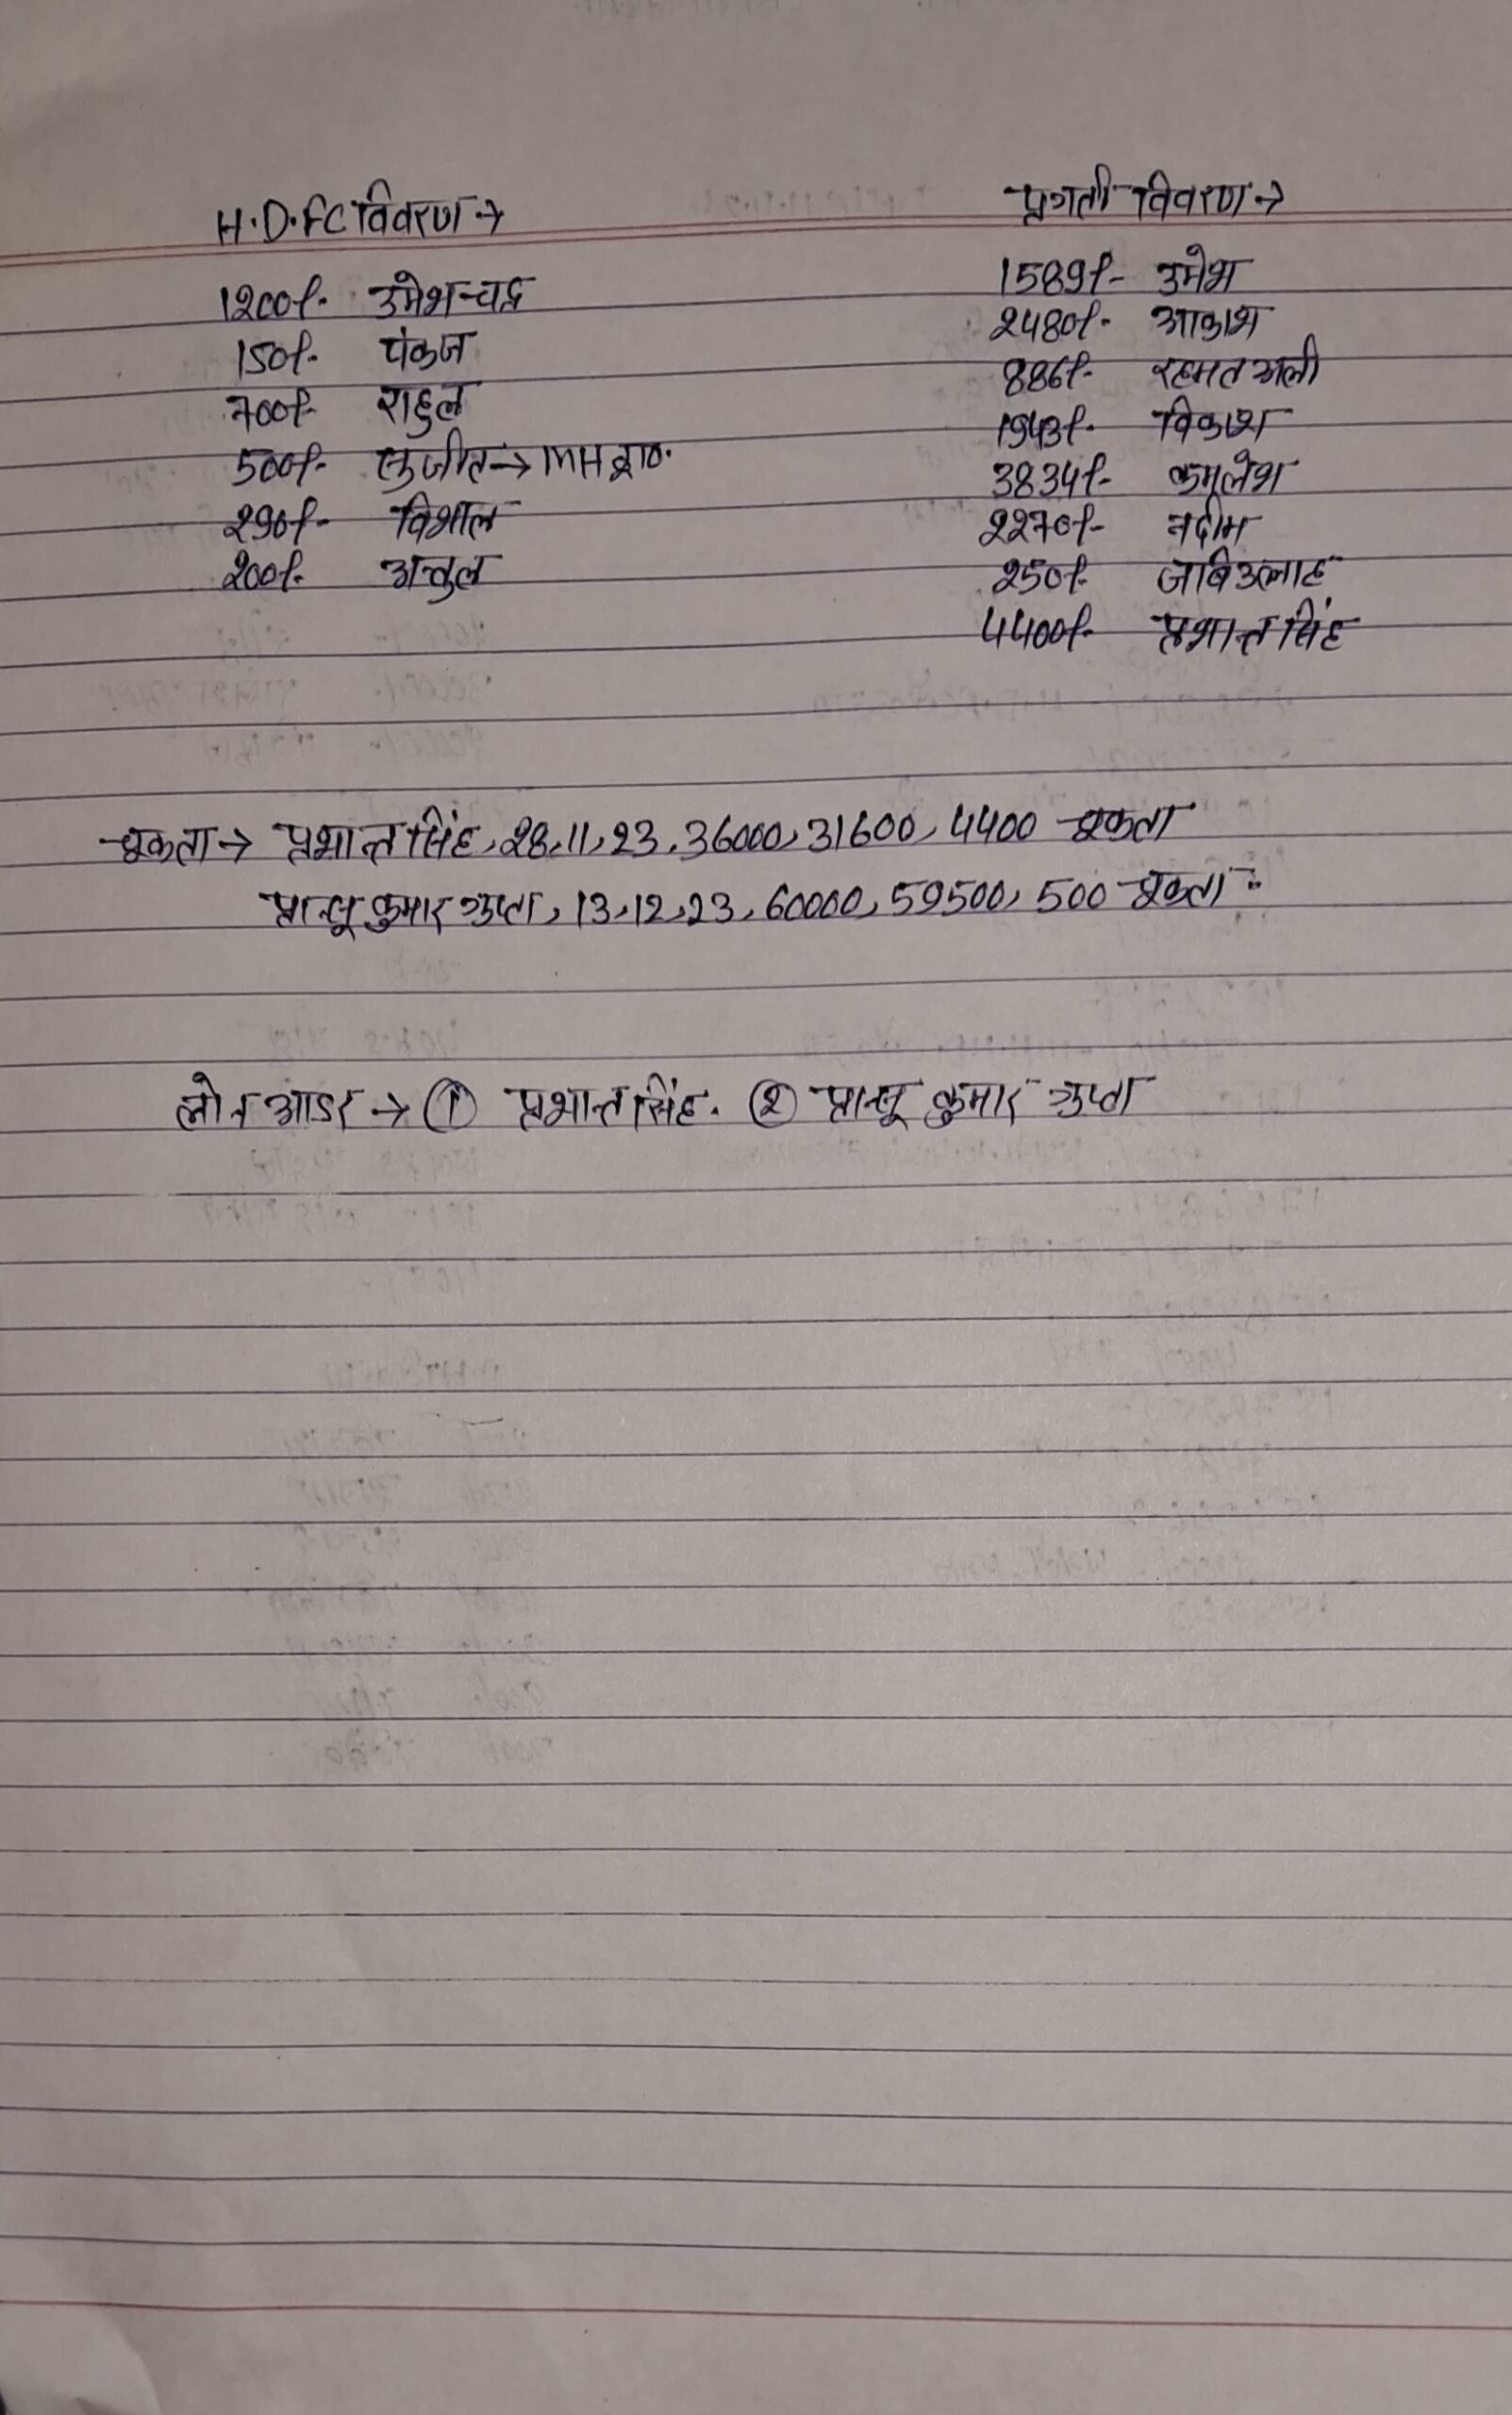 H.D.FC विवरण →
1200/- उमेश चन्द्र
150/- पंकज
700/- राहुल
500/- सुजीत → MH द्वारा०
290/- विशाल
200/- अतुल
प्रगती विवरण →
1589/- उमेश
2480/- आकाश
886/- रहमत अली
1943/- विकाश
3834/- कमलेश
2270/- नदीम
250/- जबिउल्लाह
4400/- प्रशान्त सिंह
चूकता → प्रशान्त सिंह, 28,11,23, 36000, 31600, 4400 चूकता
प्रान्शू कुमार गुप्ता, 13,12,23, 60000, 59500, 500 चूकता
लोन आडर → ① प्रशान्त सिंह. ② प्रान्शू कुमार गुप्ता